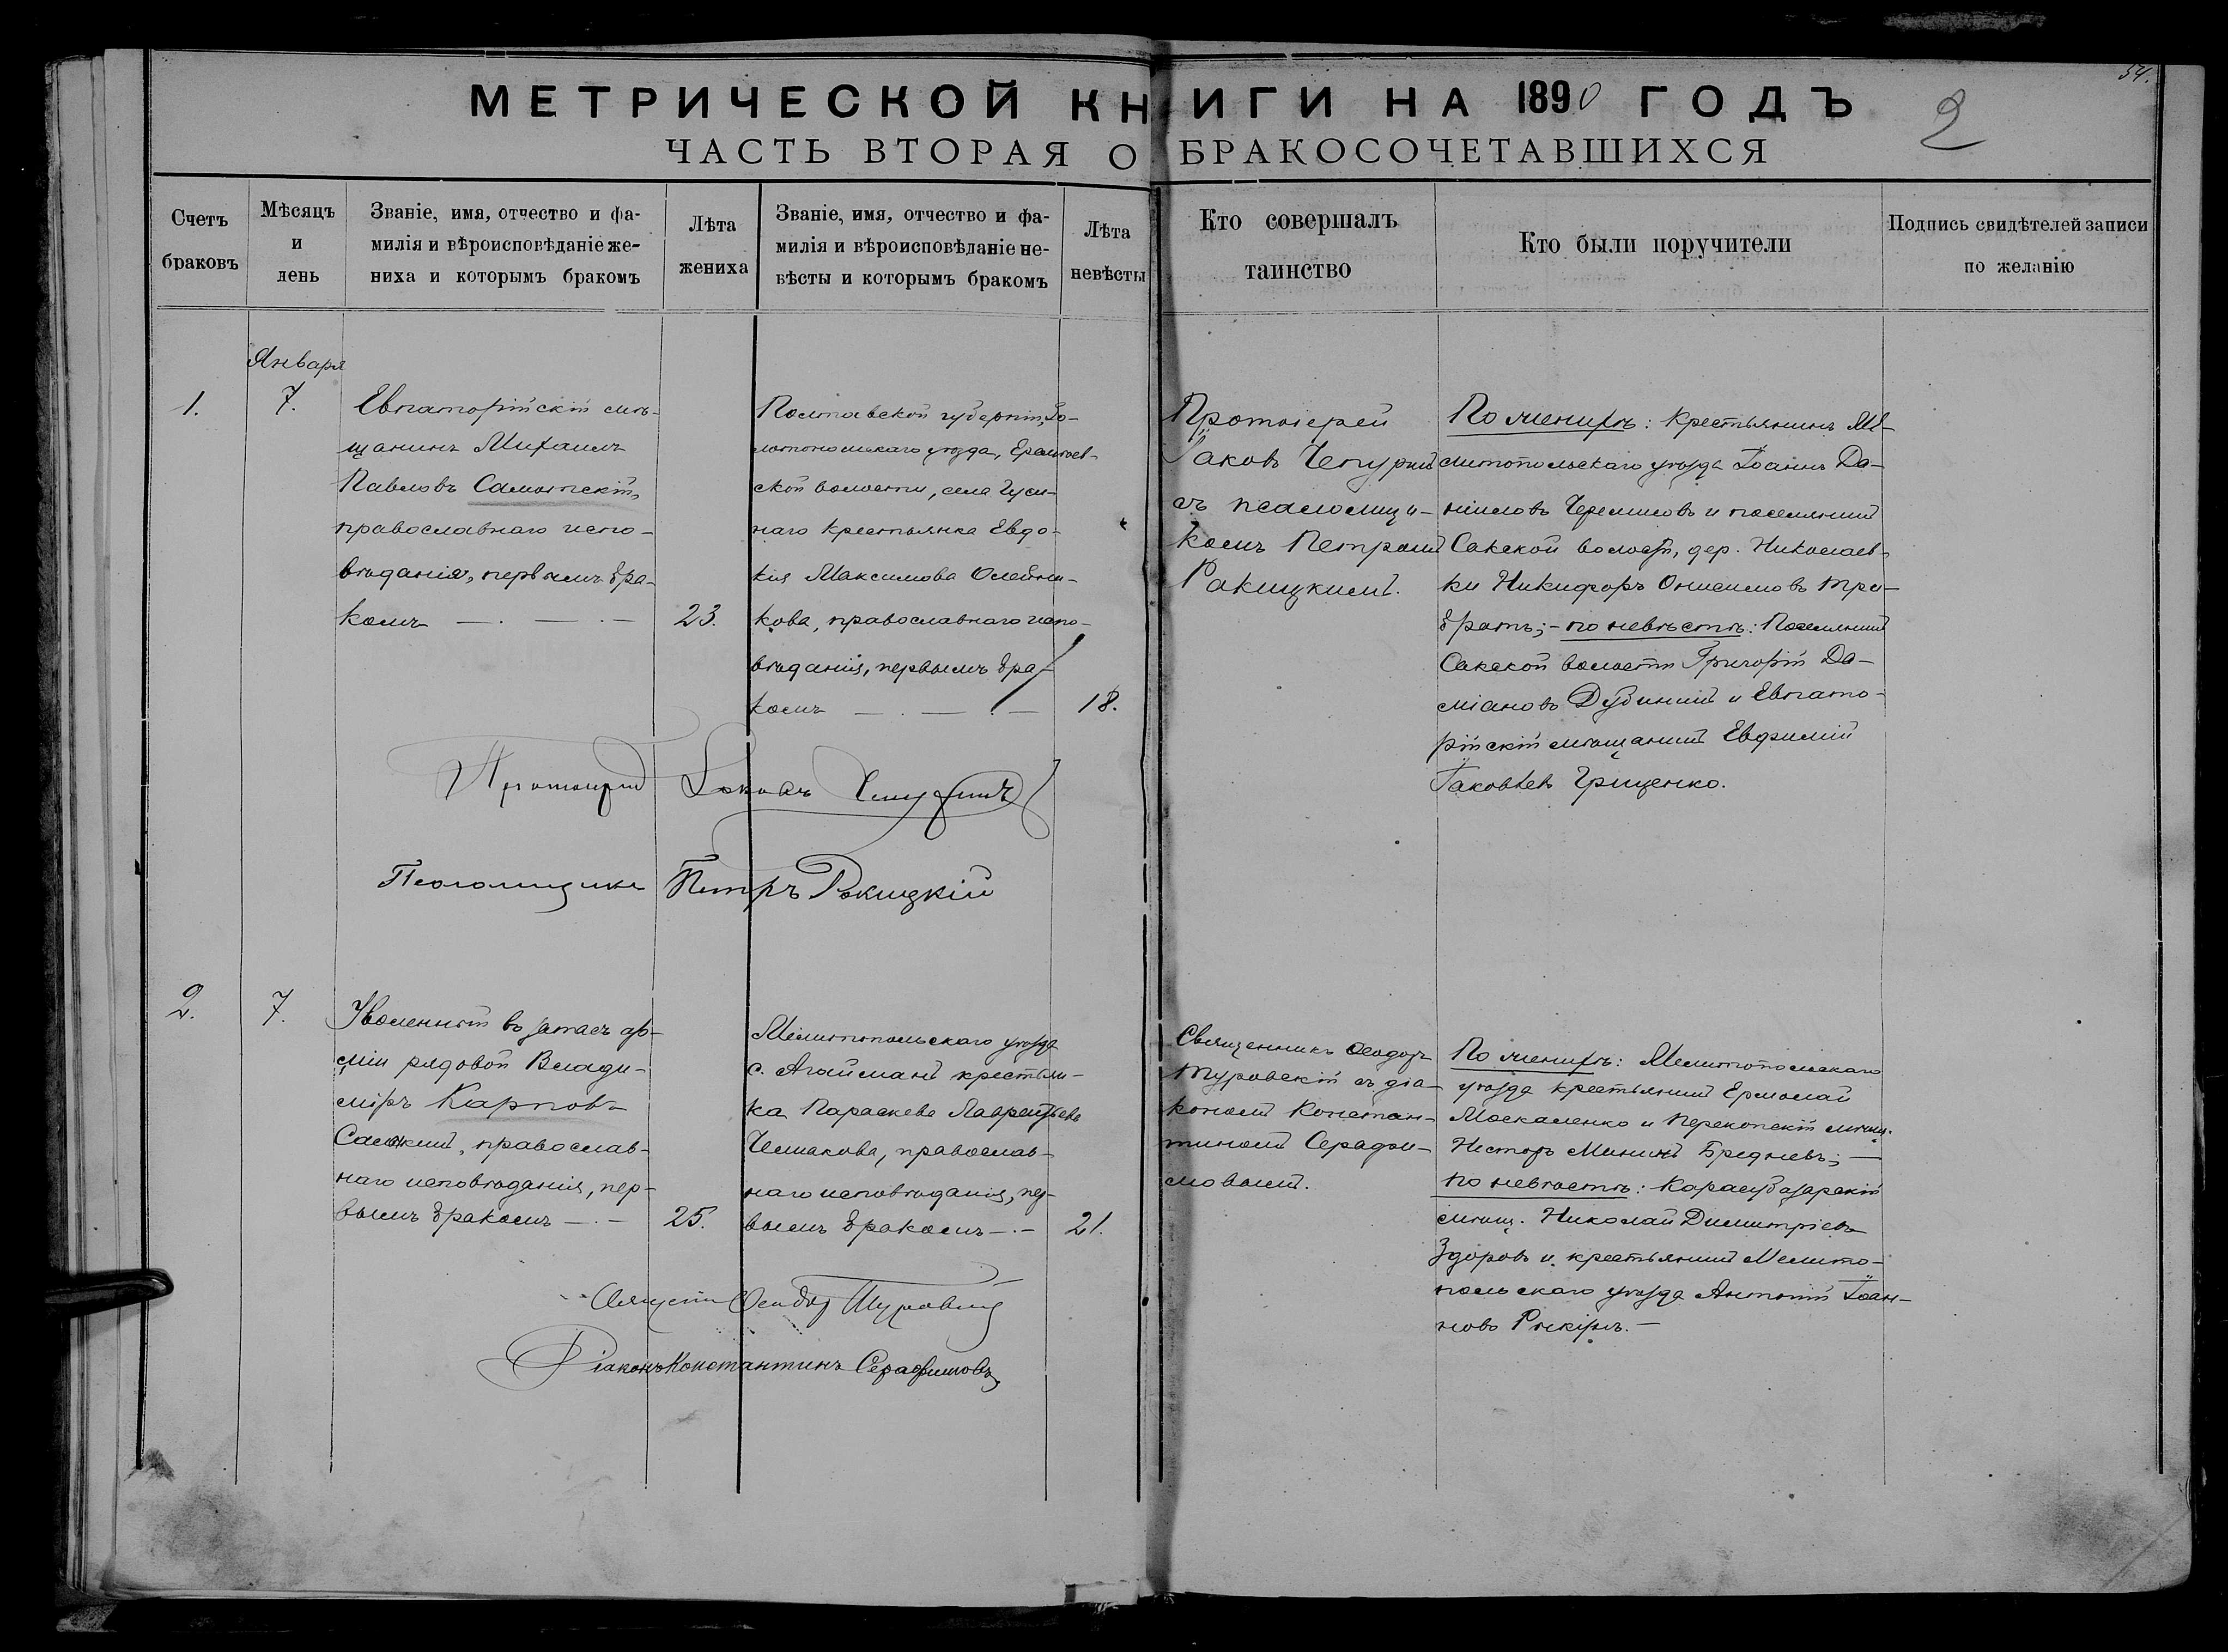 54.
МЕТРИЧЕСКОЙ КНИГИ НА 1890 ГОДЪ
2
ЧАСТЬ ВТОРАЯ О БРАКОСОЧЕТАВШИХСЯ
Счетъ
браковъ
Мѣсяцъ
и
день
Званіе, имя, отчество и фа-
милія и вѣроисповѣданіе же-
ниха и которымъ бракомъ
Лѣта
жениха
Званіе, имя, отчество и фа-
милія и вѣроисповѣданіе не-
вѣсты и которымъ бракомъ
Лѣта
невѣсты
Кто совершалъ
таинство
Кто были поручители
Подпись свидѣтелей записи
по желанію
1.
Января
7.
Евпаторійскій мѣ-
щанинъ Михаилъ
Павловъ
православнаго испо-
вѣданія, первымъ бра-
комъ
23.
Полтавской губерніи, Зо-
лотоношскаго уѣзда,
ской волости, села Гуси-
наго крестьянка Евдо-
кія Максимова Олейни-
кова, православнаго испо-
вѣданія, первымъ бра-
комъ
18.
Протоіерей
Іаковъ Чепуринъ
съ псаломщи-
комъ Петромъ
Ракицкимъ.
По женихѣ: Крестьянинъ Ме-
литопольскаго уѣзда Іоаннъ Да-
ніиловъ Черемисовъ и поселянинъ
Сакской волости, дер. Николаев-
ки Никифоръ Онисимовъ Три-
братъ; - по невѣстѣ: Поселянинъ
Сакской волости Григорій Да-
міановъ Дубининъ и Евпато-
рійскій мѣщанинъ Евфимій
Іаковлевъ Грищенко.
Протоіерей Іаковъ Чепуринъ
Псаломщикъ Петръ Ракицкій
2.
7.
Уволенный въ запасъ ар-
міи рядовой Влади-
міръ Карповъ
православ-
наго исповѣданія, пер-
вымъ бракомъ
25.
Мелитопольскаго уѣзда
с. Агайманъ крестьян-
ка Параскева Лаврентьева
Чемакова, православ-
наго исповѣданія, пер-
вымъ бракомъ
21.
Священникъ Ѳеодоръ
Туровскій съ діа-
кономъ Констан-
тиномъ Серафи-
мовымъ.
По женихѣ: Мелитопольскаго
уѣзда крестьянинъ Ермолай
Москаленко и Перекопскій мѣщ.
Несторъ Мининъ Бредневъ; —
по невѣстѣ: Карасубазарскій
мѣщ. Николай Димитріевъ
Здоровъ и крестьянинъ Мелито-
польскаго уѣзда Антоній Іоан-
новъ
Священникъ Ѳеодоръ Туровскій
Діаконъ Константинъ Серафимовъ